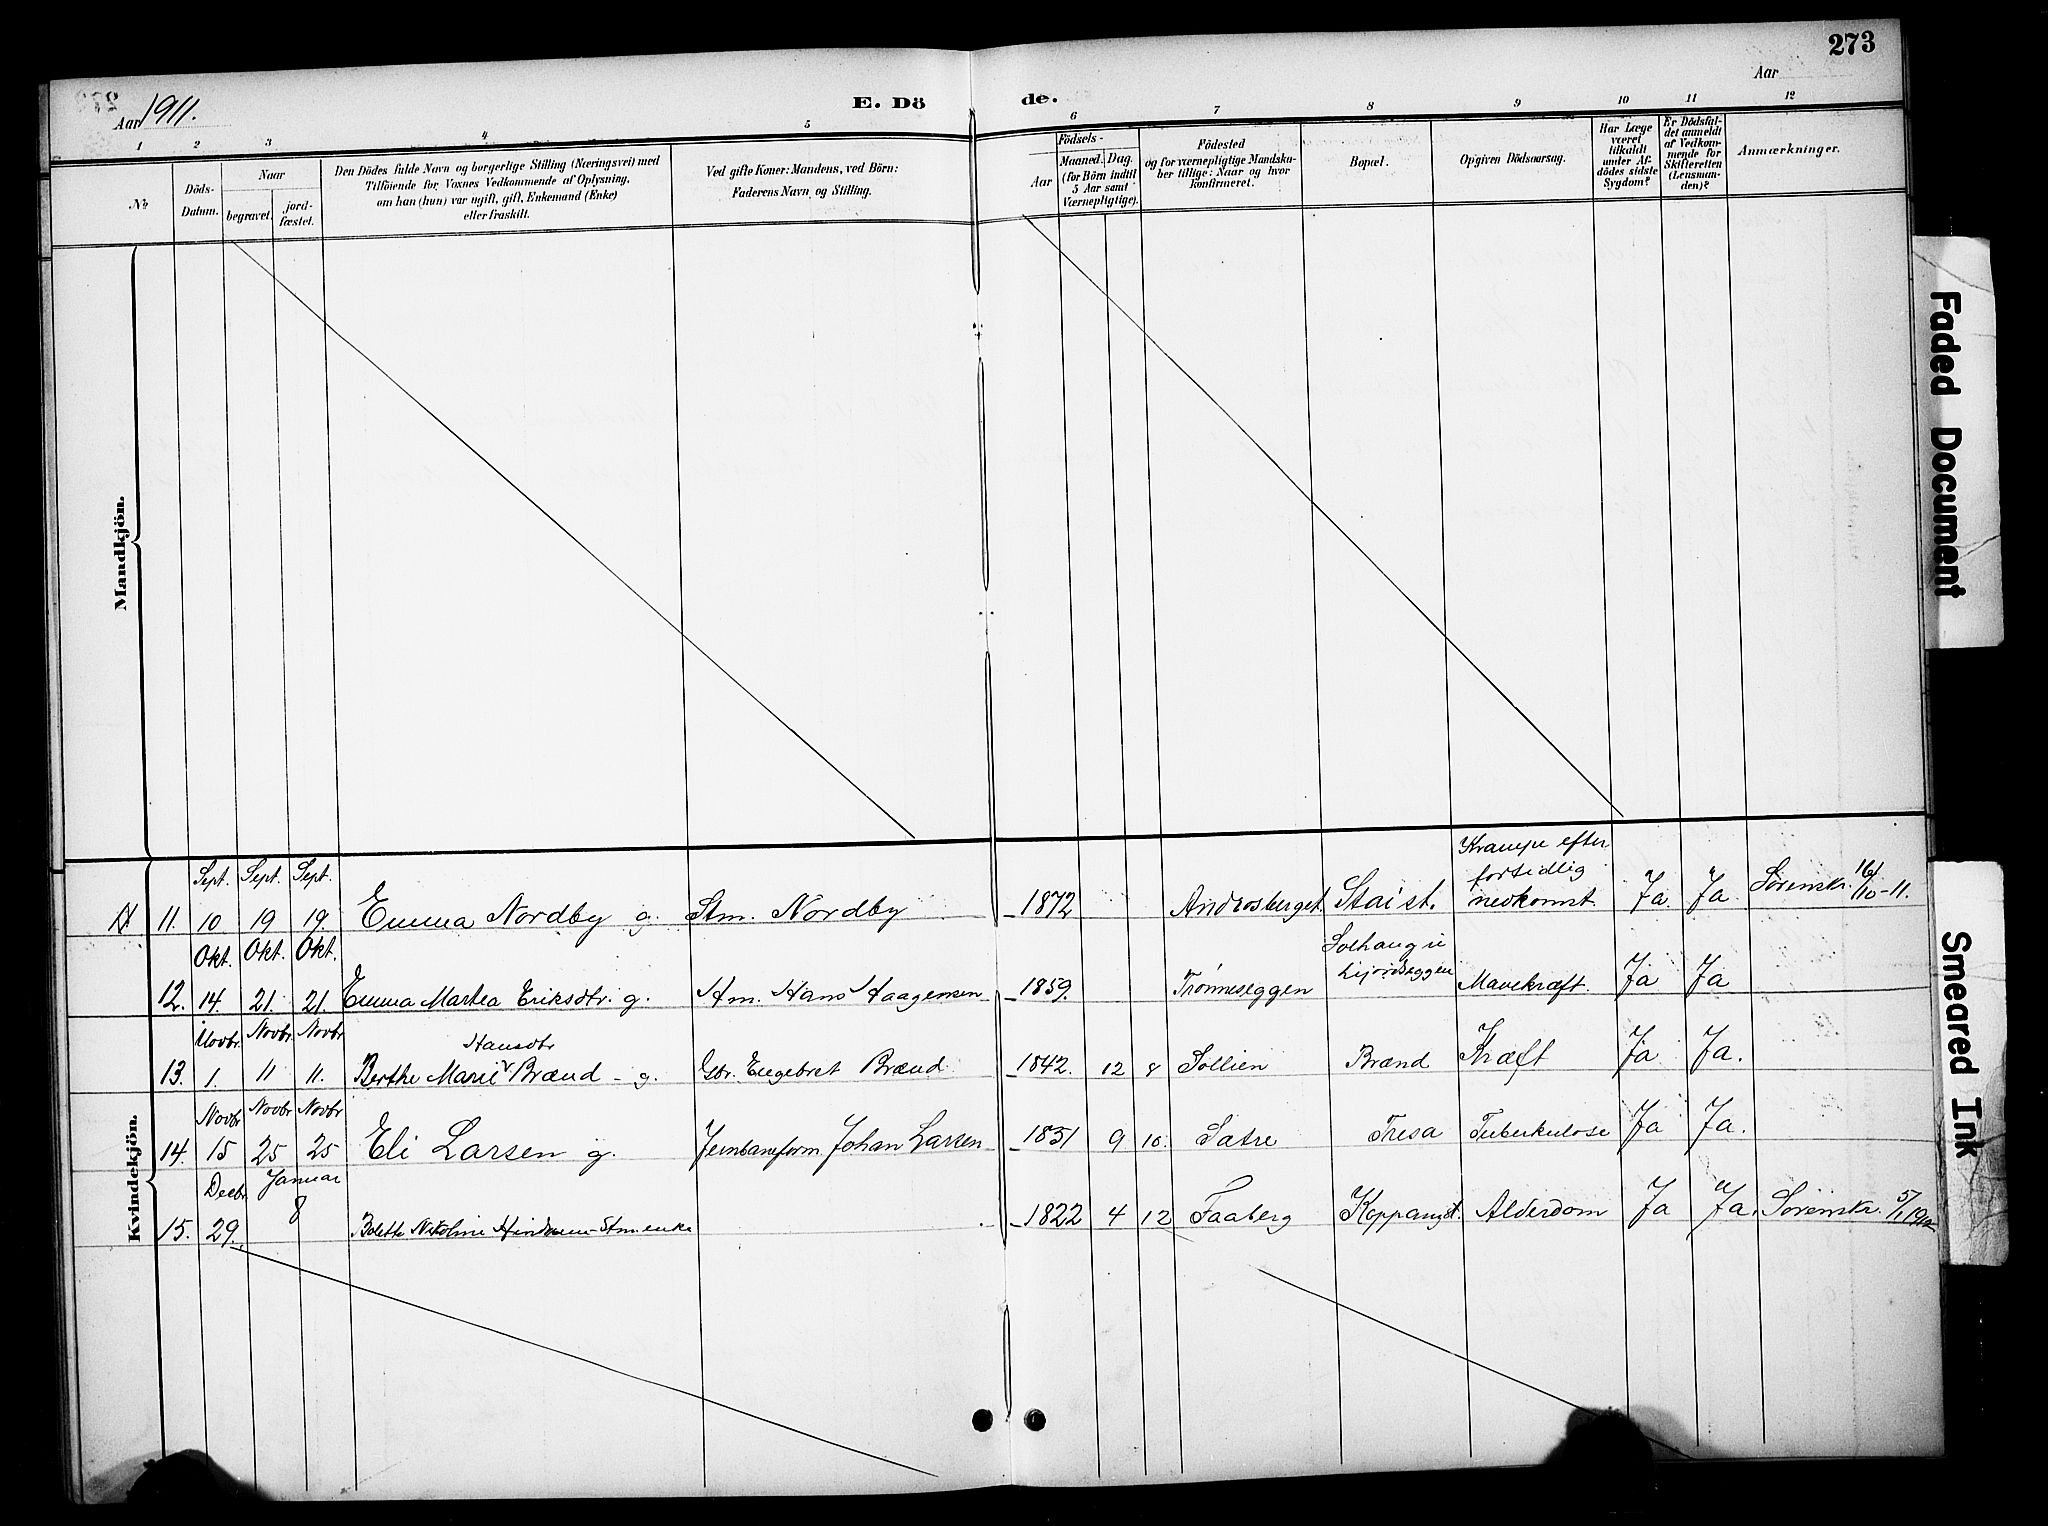 273
Aar 1911.
E. Dö de.
Aar
1 2 3 4 5 6 7 8 9 10 11 12
No.
Döds-Datum.
Naar
begravet.
jord-fæstet.
Den Dödes fulde Navn og borgerlige Stilling (Næringsvei) med
Tilföiende for Voxnes Vedkommende af Oplysning,
om han (hun) var ugift, gift, Enkemand (Enke)
eller fraskilt.
Ved gifte Koner: Mandens, ved Börn:
Faderens Navn og Stilling.
Födsels-
Aar
Maaned. Dag.
(for Börn indtil
5 Aar samt
Værnepligtige).
Födested
og for værnepligtige Mandska-
ber tillige: Naar og hvor
konfirmeret.
Bopæl.
Opgiven Dödsaarsag.
Har Læge
været
tilkaldt
under Af-
dödes sidste
Sygdom?
Er Dödsfal-
det anmeldt
af Vedkom-
mende for
Skifteretten
(Lensman-
den)?
Anmærkninger.
Mandkjön.
Kvindekjön.
Sept. Sept. Sept. Krampe efter
fortidlig
11. 10 19 19. Emma Nordby g. Stm. Nordby 1872 Androsberget. Stai st. nedkomst. Ja. Ja. Sørensk. 16/10-11.
Okt. Okt. Okt. Solhaug i
12. 14 21. 21. Emma Martea Eriksdtr. g. Hm. Hans Haagensen 1859. Trønneseggen Mavekræft. Ja Ja
Novbr. Novbr Novbr Hansdtr
13. 1. 11 11. Berthe Marie Brænd - g. Gbr. Engebret Brænd 1842. 12 8 Sollien Brænd Kræft Ja Ja.
Novbr Novbr Novbr
14. 15 25 25 Eli Larsen g. Jernbaneform. Johan Larsen 1851 9 10. Satre Tresa Tuberkulose Ja Ja.
Decbr. Januar
15. 29. 8 Bolette Nikoline - Stm. enke 1822 4 12 Faaberg Koppang st. Alderdom Ja Ja. Sørensk. 5/1 1912
Faded Document
Smeared Ink